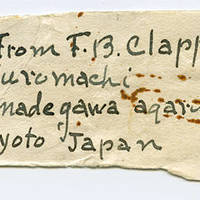 From F.B. Clapp
uromachi
nadegawa agaru
yoto Japan